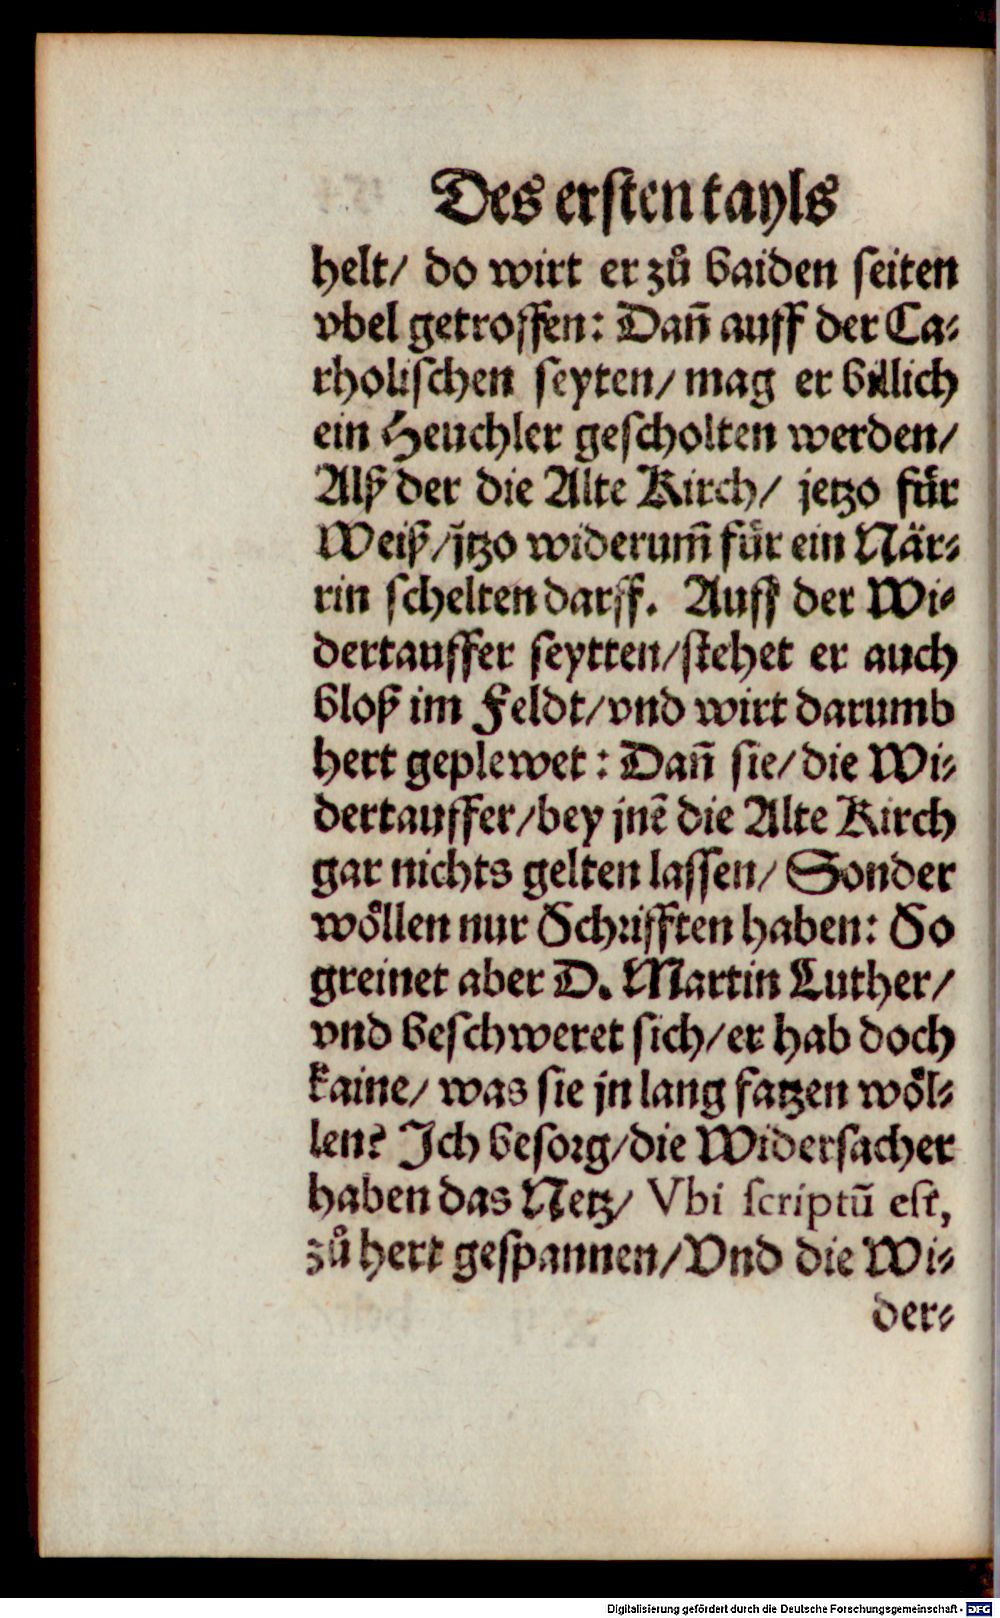 Des ersten tayls
helt/ do wirt er zů baiden seiten
vbel getroffen: Dañ auff der Ca-
tholischen seyten/ mag er billich
ein Heuchler gescholten werden/
Alß der die Alte Kirch/ jetzo fůr
Weiß/ j̃tzo widerum̃ fůr ein När-
rin schelten darff. Auff der Wi-
dertauffer seytten/ stehet er auch
bloß im Feldt/ vnd wirt darumb
hert geplewet: Dañ sie/ die Wi-
dertauffer/ bey jnẽ die Alte Kirch
gar nichts gelten lassen/ Sonder
wöllen nur Schrifften haben: So
greinet aber D. Martin Luther/
vnd beschweret sich/ er hab doch
kaine/ was sie jn lang fatzen wöl-
len? Ich besorg/ die Widersacher
haben das Netz/ Vbi scriptũ est,
zů hert gespannen/ Vnd die Wi-
der-
Digitalisierung gefördert durch die Deutsche Forschungsgemeinschaft - DFG